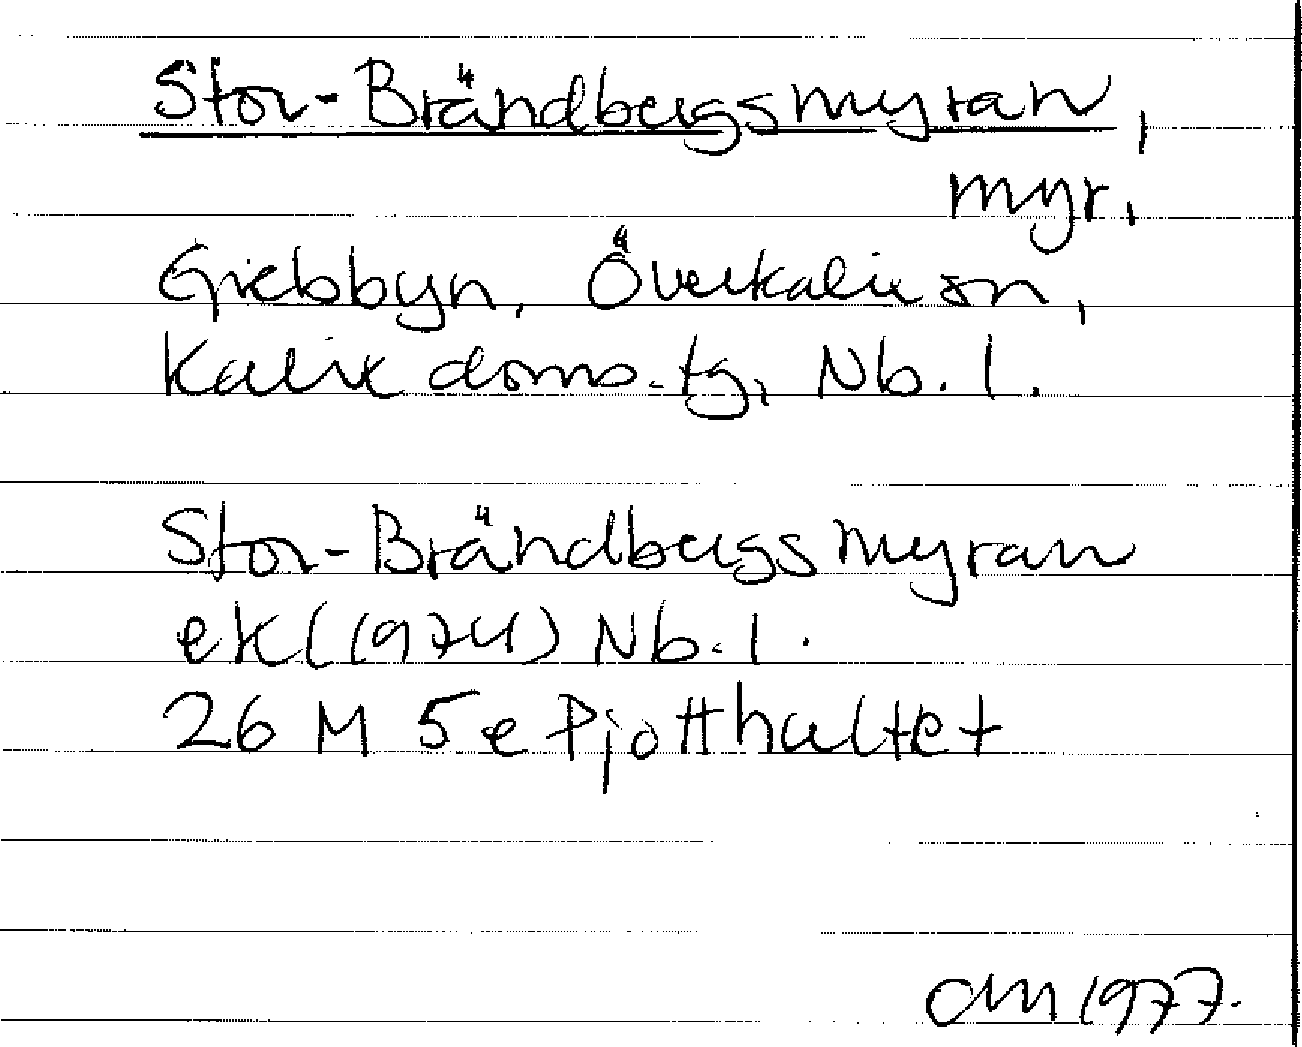 Stor-Brändbergsmyran,
myr.
Grebbyn, Överkalix sn,
Kalix doms.tg, Nb. l.
Stor-Brändbergsmyran
ek (1974) Nb. l.
26 M 5 e Pjotthultet
1977.